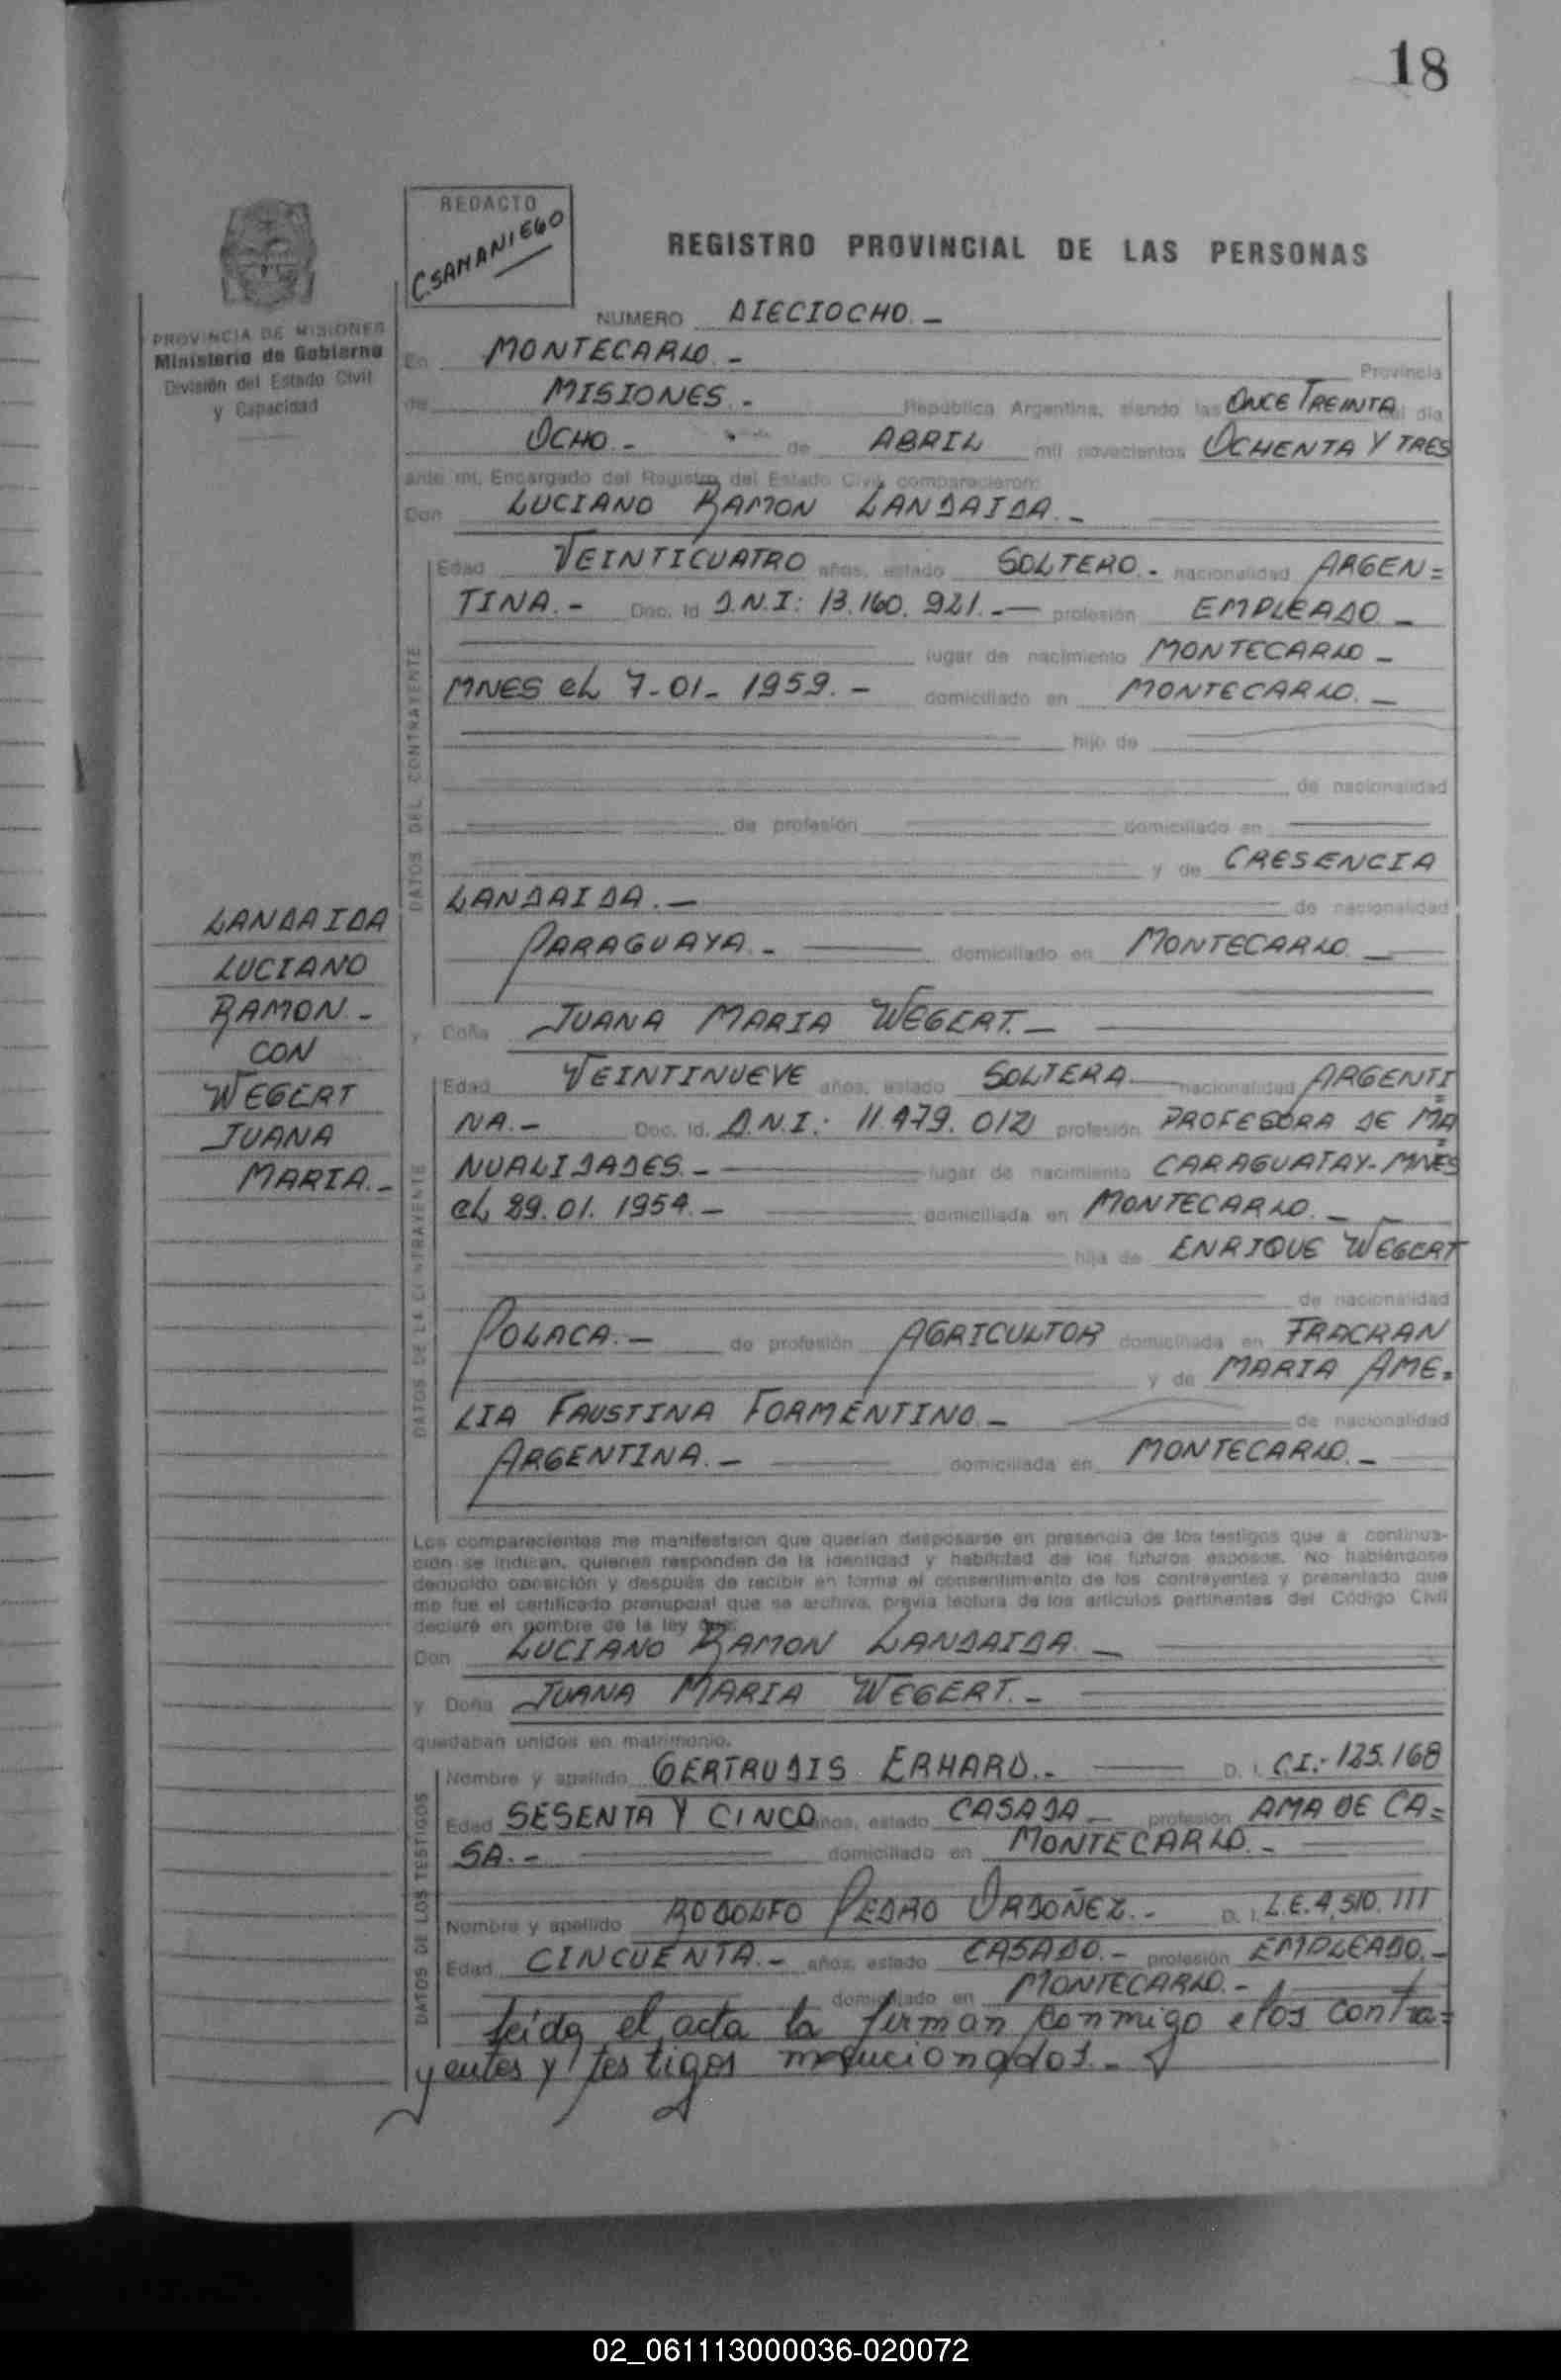 18
REDACTO
CSAMANIEGO
REGISTRO PROVINCIAL DE LAS PERSONAS
PROVINCIA DE MISIONES
Ministerio de Gobierno
División del Estado Civil
y Capacidad
NUMERO DIECIOCHO.-
En MONTECARLO.- Provincia
de MISIONES.- República Argentina, siendo las ONCE TREINTA del día
OCHO.- de ABRIL mil novecientos OCHENTA Y TRES
ante mi, Encargado del Registro del Estado Civil, comparecieron:
Don LUCIANO RAMON LANDAIDA.-
DATOS DEL CONTRAYENTE
Edad VEINTICUATRO años, estado SOLTERO.- nacionalidad ARGEN=
TINA.- Doc. Id D.N.I: 13.160.921.- profesión EMPLEADO-
lugar de nacimiento MONTECARLO-
MNES EL 7-01-1959.- domiciliado en MONTECARLO.-
hijo de
de nacionalidad
de profesión domiciliado en
y de CRESENCIA
LANDAIDA.- de nacionalidad
PARAGUAYA.- domiciliado en MONTECARLO-
y Doña JUANA MARIA WEGERT.-
LANDAIDA
LUCIANO
RAMON-
CON
WEGERT
JUANA
MARIA.-
DATOS DE LA CONTRAYENTE
Edad VEINTINUEVE años, estado SOLTERA nacionalidad ARGENTI=
NA.- Doc. Id. D.N.I.: 11.479.012 profesión PROFESORA DE MA=
NUALIDADES.- lugar de nacimiento CARAGUATAY-MNES
EL 29.01.1954.- domiciliada en MONTECARLO.-
hija de ENRIQUE WEGERT
de nacionalidad
POLACA.- de profesión AGRICULTOR domiciliada en FRACRAN
y de MARIA AME=
LIA FAUSTINA FORMENTINO- de nacionalidad
ARGENTINA.- domiciliada en MONTECARLO.-
Los comparecientes me manifestaron que querían desposarse en presencia de los testigos que a continua-
ción se indican, quienes responden de la identidad y habilidad de los futuros esposos. No habiéndose
deducido oposición y después de recibir en forma el consentimiento de los contrayentes y presentado que
me fue el certificado prenupcial que se archiva, previa lectura de los artículos pertinentes del Código Civil
declaré en nombre de la ley que:
Don LUCIANO RAMON LANDAIDA.-
y Doña JUANA MARIA WEGERT.-
quedaban unidos en matrimonio.
DATOS DE LOS TESTIGOS
Nombre y apellido GERTRUDIS ERHARD.- D. I. C.I.-125.168
Edad SESENTA Y CINCO años, estado CASADA- profesión AMA DE CA=
SA.- domiciliado en MONTECARLO.-
Nombre y apellido RODOLFO PEDRO ORDOÑEZ.- D. I. L.E.4.510.111
Edad CINCUENTA.- años, estado CASADO.- profesión EMPLEADO.-
domiciliado en MONTECARLO.-
Leida el acta la firman conmigo e los contra=
yentes y testigos mencionados.-
02_061113000036-020072